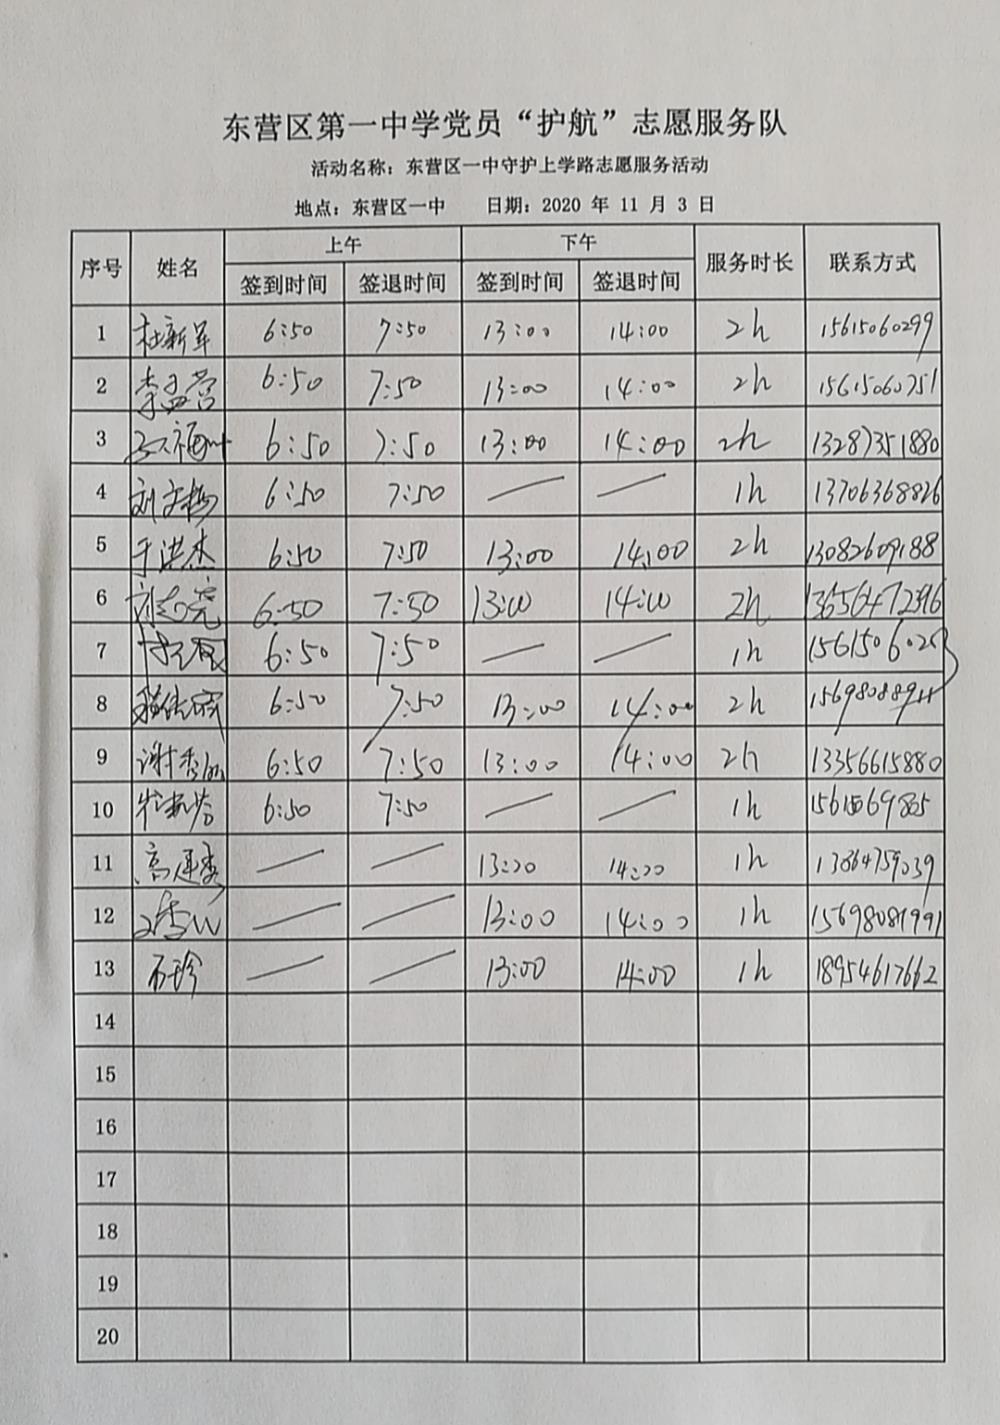 东营区第一中学党员“护航”志愿服务队
活动名称：东营区一中守护上学路志愿服务活动
地点：东营区一中 日期：2020 年 11 月 3 日
序号 姓名 上午 下午 服务时长 联系方式
签到时间 签退时间 签到时间 签退时间
1 杜新军 6:50 7:50 13:00 14:00 2h 15615060299
2 李孟营 6:50 7:50 13:00 14:00 2h 15615060751
3 6:50 7:50 13:00 14:00 2h 13287351880
4 刘文杨 6:50 7:50 — — 1h 13706368826
5 于洪杰 6:50 7:50 13:00 14:00 2h 13082609188
6 刘志亮 6:50 7:50 13:00 14:00 2h
7 6:50 7:50 — — 1h
8 6:50 7:50 13:00 14:00 2h
9 6:50 7:50 13:00 14:00 2h 13356615880
10 6:50 7:50 — — 1h
11 — — 13:00 14:00 1h 13864759039
12 — — 13:00 14:00 1h 15698081991
13 石珍 — — 13:00 14:00 1h 18954617662
14
15
16
17
18
19
20